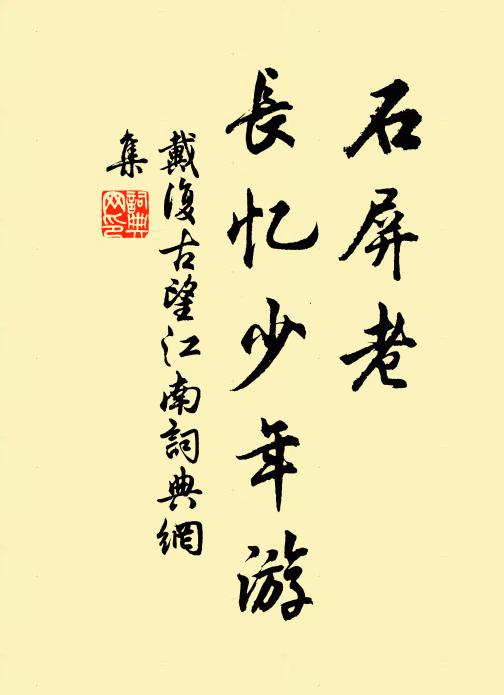 石屏老
長忆少年游
戴復古望江南詞典網
集
詞典網印